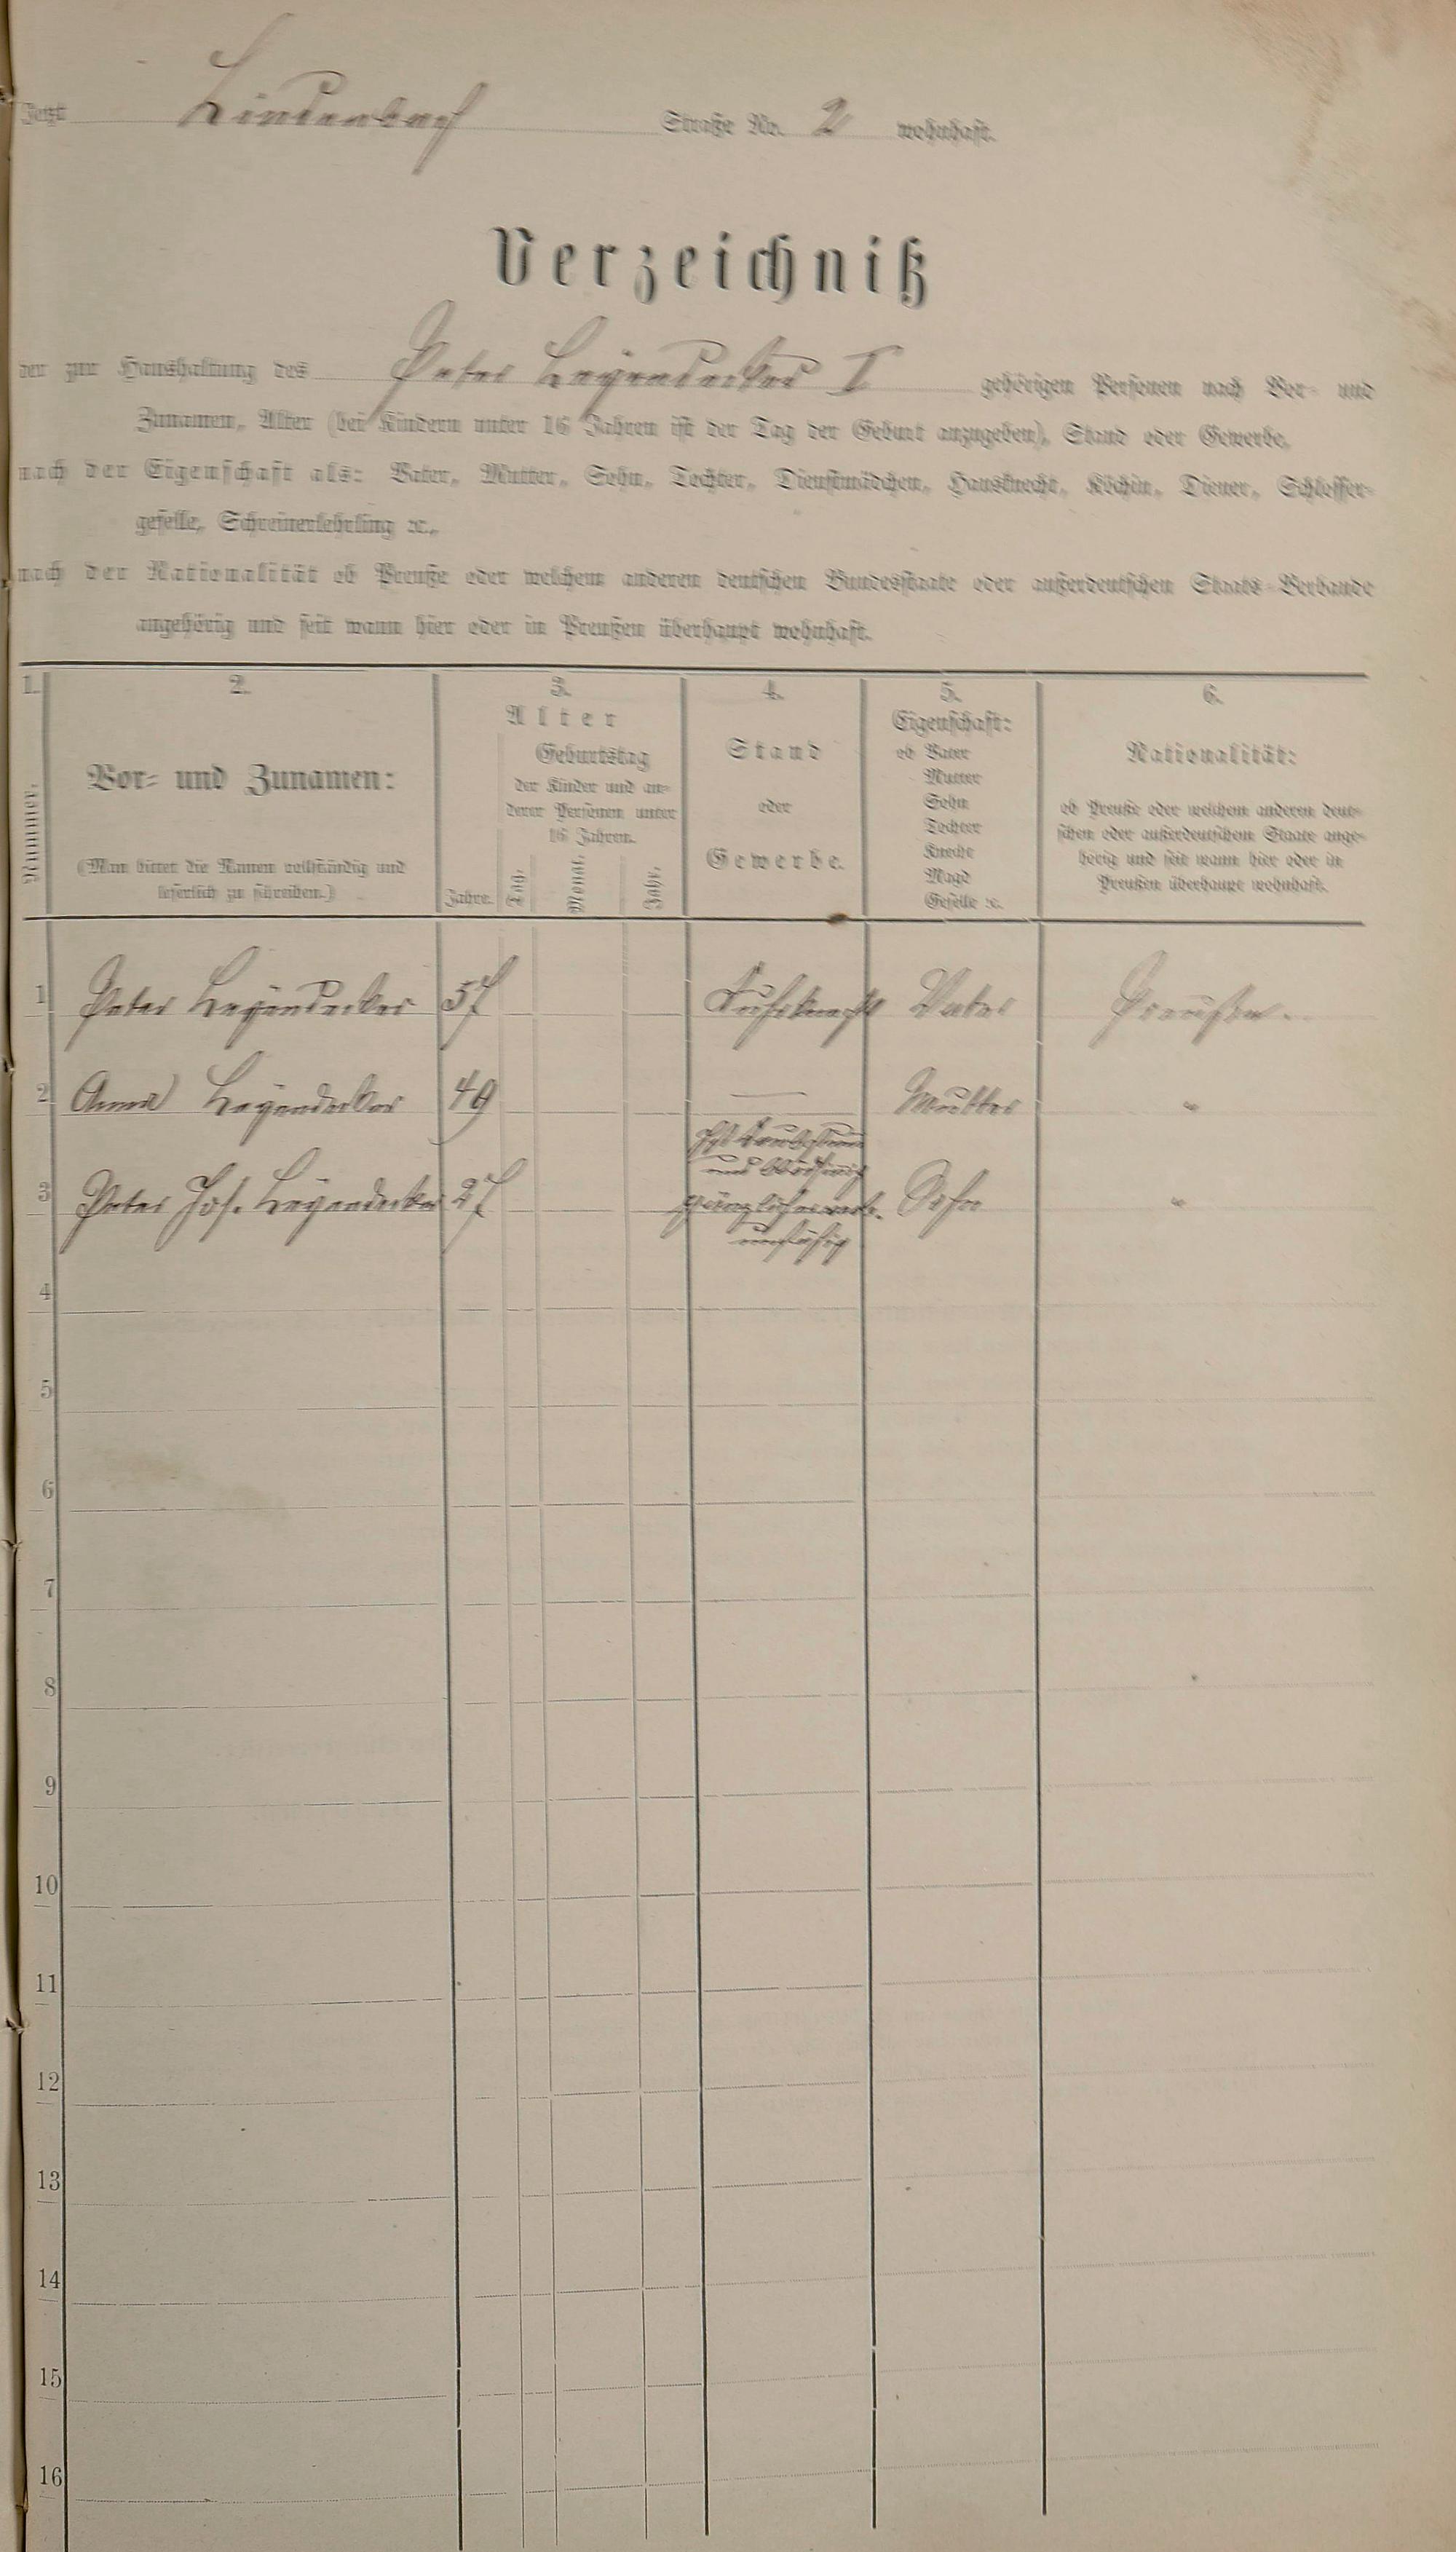 Jetzt Lindenbach Straße No. 2 wohnhaft.
Verzeichniß
der zur Haushaltung des Peter Leyendecker I gehörigen Personen nach Vor- und
Zunamen, Alter (bei Kindern unter 16 Jahren ist der Tag der Geburt anzugeben), Stand oder Gewerbe,
nach der Eigenschaft als: Vater, Mutter, Sohn, Tochter, Dienstmädchen, Hausknecht, Köchin, Diener, Schlosser-
geselle, Schreinerlehrling ꝛc.,
nach der Nationalität ob Preuße oder welchem anderen deutschen Bundesstaate oder außerdeutschen Staats-Verbande
angehörig und seit wann hier oder in Preußen überhaupt wohnhaft.
1. 2. 3. 4. 5. 6.
Nummer.
Vor- und Zunamen:
(Man bittet die Namen vollständig und
leserlich zu schreiben.)
Alter
Geburtstag
der Kinder und an-
derer Personen unter
16 Jahren.
Jahre. Tag. Monat. Jahr.
Stand
oder
Gewerbe.
Eigenschaft:
ob Vater
Mutter
Sohn
Tochter
Knecht
Magd
Geselle ꝛc.
Nationalität:
ob Preuße oder welchem anderen deut-
schen oder außerdeutschem Staate ange-
hörig und seit wann hier oder in
Preußen überhaupt wohnhaft.
1 Peter Leyendecker 57 Fuhrknecht Vater Preußen.
2 Anna Leyendecker 49 — Mutter "
3 Peter Jos. Leyendecker 27 Sohn "
ist taubstumm
und
gänzlich erwerbs-
unfähig
4
5
6
7
8
9
10
11
12
13
14
15
16